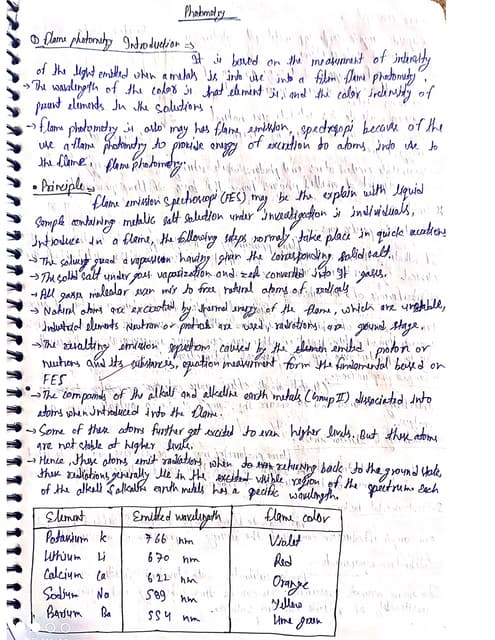 Photometry
① flame photometry Introduction ⇒
It is based on the measurment of intensity
of the light emitted when a metals is into use into a flame photometry.
→ The wavelength of the color is that element is, and the color intensity of
present elements In the solutions
→ flame photometry is also may has flame, emission, spectrosopi because of the
use a flame photometry to provide energy of excretion to atoms into use to
the flame. flame photometry.
• Principle ⇒
flame emission spectroscopi (FES) may be the explain with liquid
Sample containing metalic salt solution under Investigation is individuals,
Introduce In a flame, the following steps normaly take place in quick
→ The solvent a vaporisation having given the corresponding solid salt.
→ The solid salt under goes vaporization and converted into It gases.
→ All gases molecular even mix to free natural atoms of radicals
→ Natural atoms are excreated by thermal energy of the flame, which are unstable,
Industrial elements Neutron or protons are used, radiations are ground stage.
→ The resulting emission equetion caused by the element emited proton or
neutrons and its substances, equation measurment form the fundamental based on
FES
→ The compounds of the alkali and alkeline earth metals (Group II) dissociated Into
atoms when introduced into the flame.
→ Some of these atoms further get excited to even higher levels, But these atoms
are not stable at higher levels.
→ Hence, these atoms emit radiations when to returning back to the ground state
these radiations generally lie in the visible region of the spectrum each
of the alkali & alkaline earth metals has a specific wavelength
Element Emitted wavelength flame color
Potassium K 766 nm Violet
Lithium Li 670 nm Red
Calcium Ca 622 nm Orange
Sodium Na 589 nm Yellow
Barium Ba 554 nm Lime green